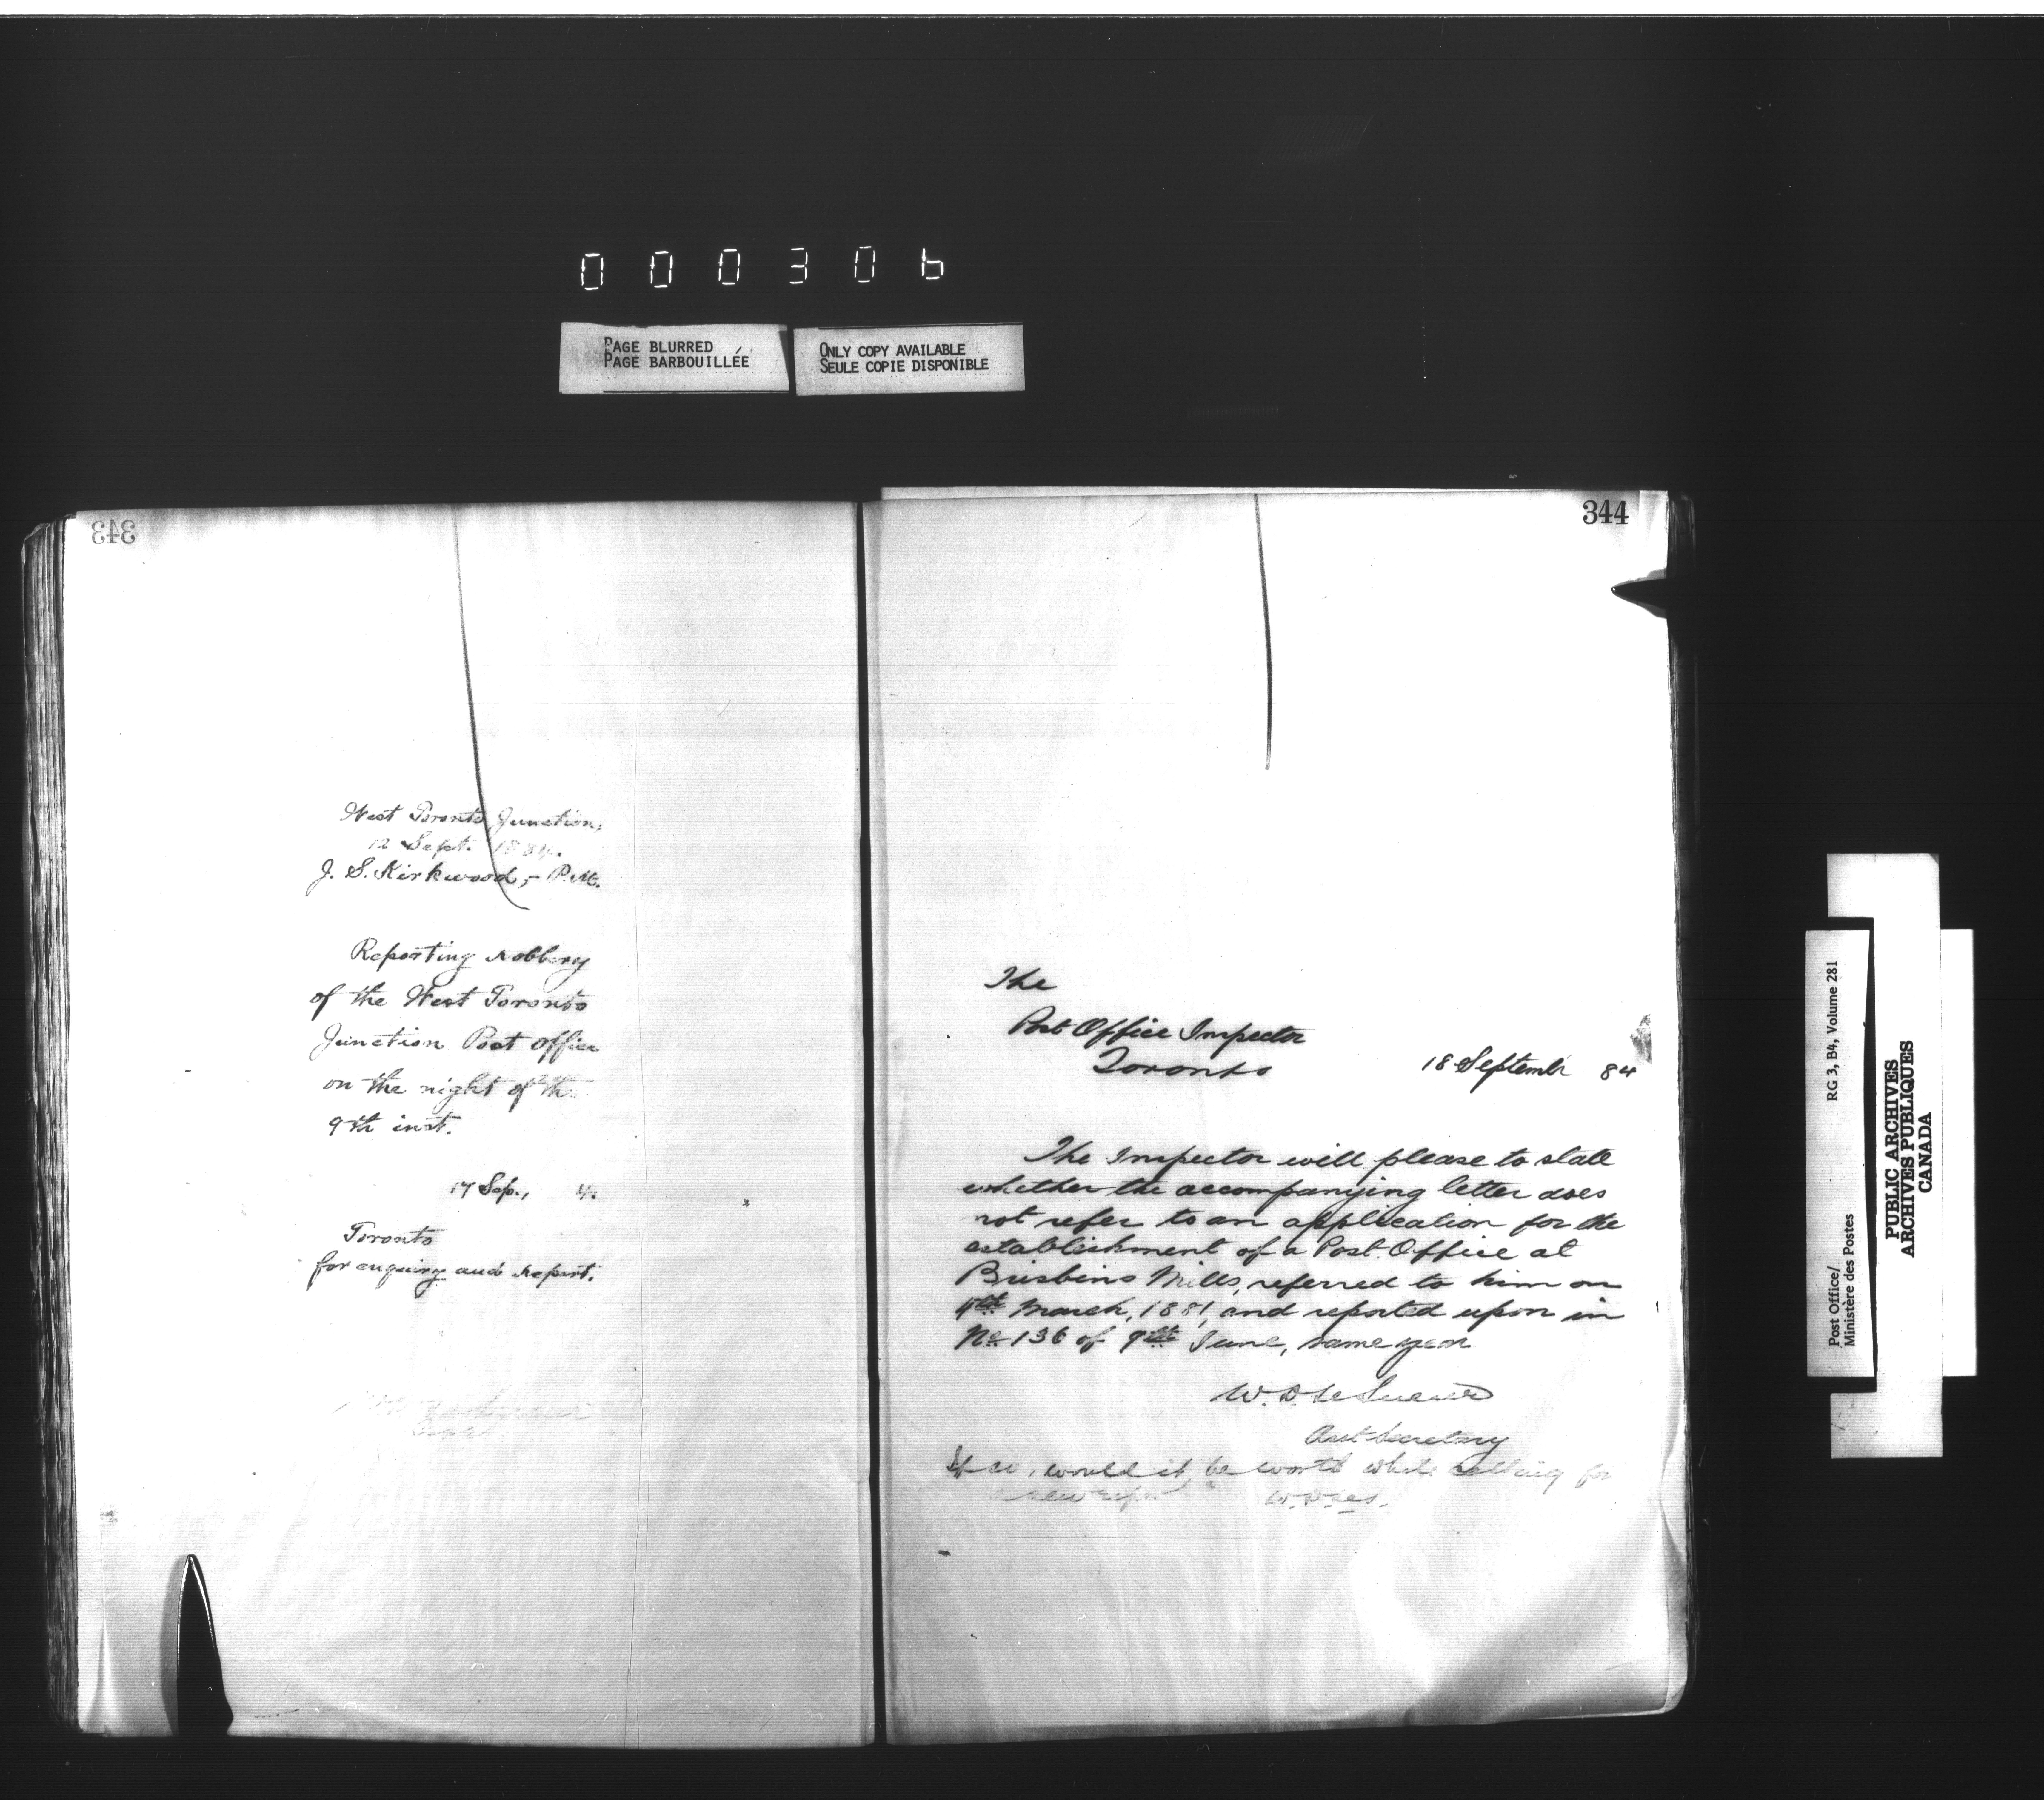 000306
PAGE BLURRED
PAGE BARBOUILLÉE
ONLY COPY AVAILABLE
SEULE COPIE DISPONIBLE
343
West Toronto Junction,
12 Sept. 1884.
J. S. Kirkwood, - P.M.
Reporting robbery
of the West Toronto
Junction Post office
on the night of the
9th inst.
17 Sep., 4.
Toronto
for enquiry and report.
344
The
Post Office Inspector
Toronto
18 September 84
The Inspector will please to state
whether the accompanying letter does
not refer to an application for the
establishment of a Post Office at
Brisbins Mills, referred to him on
4th March, 1881, and reported upon in
No 136 of 9th June, same year
W. D. LeSueur
Asst Secretary
If so, would it be worth while calling for
a new report W.D.LeS.
Post Office/
Ministère des Postes
RG 3, B4, Volume 281
PUBLIC ARCHIVES
ARCHIVES PUBLIQUES
CANADA